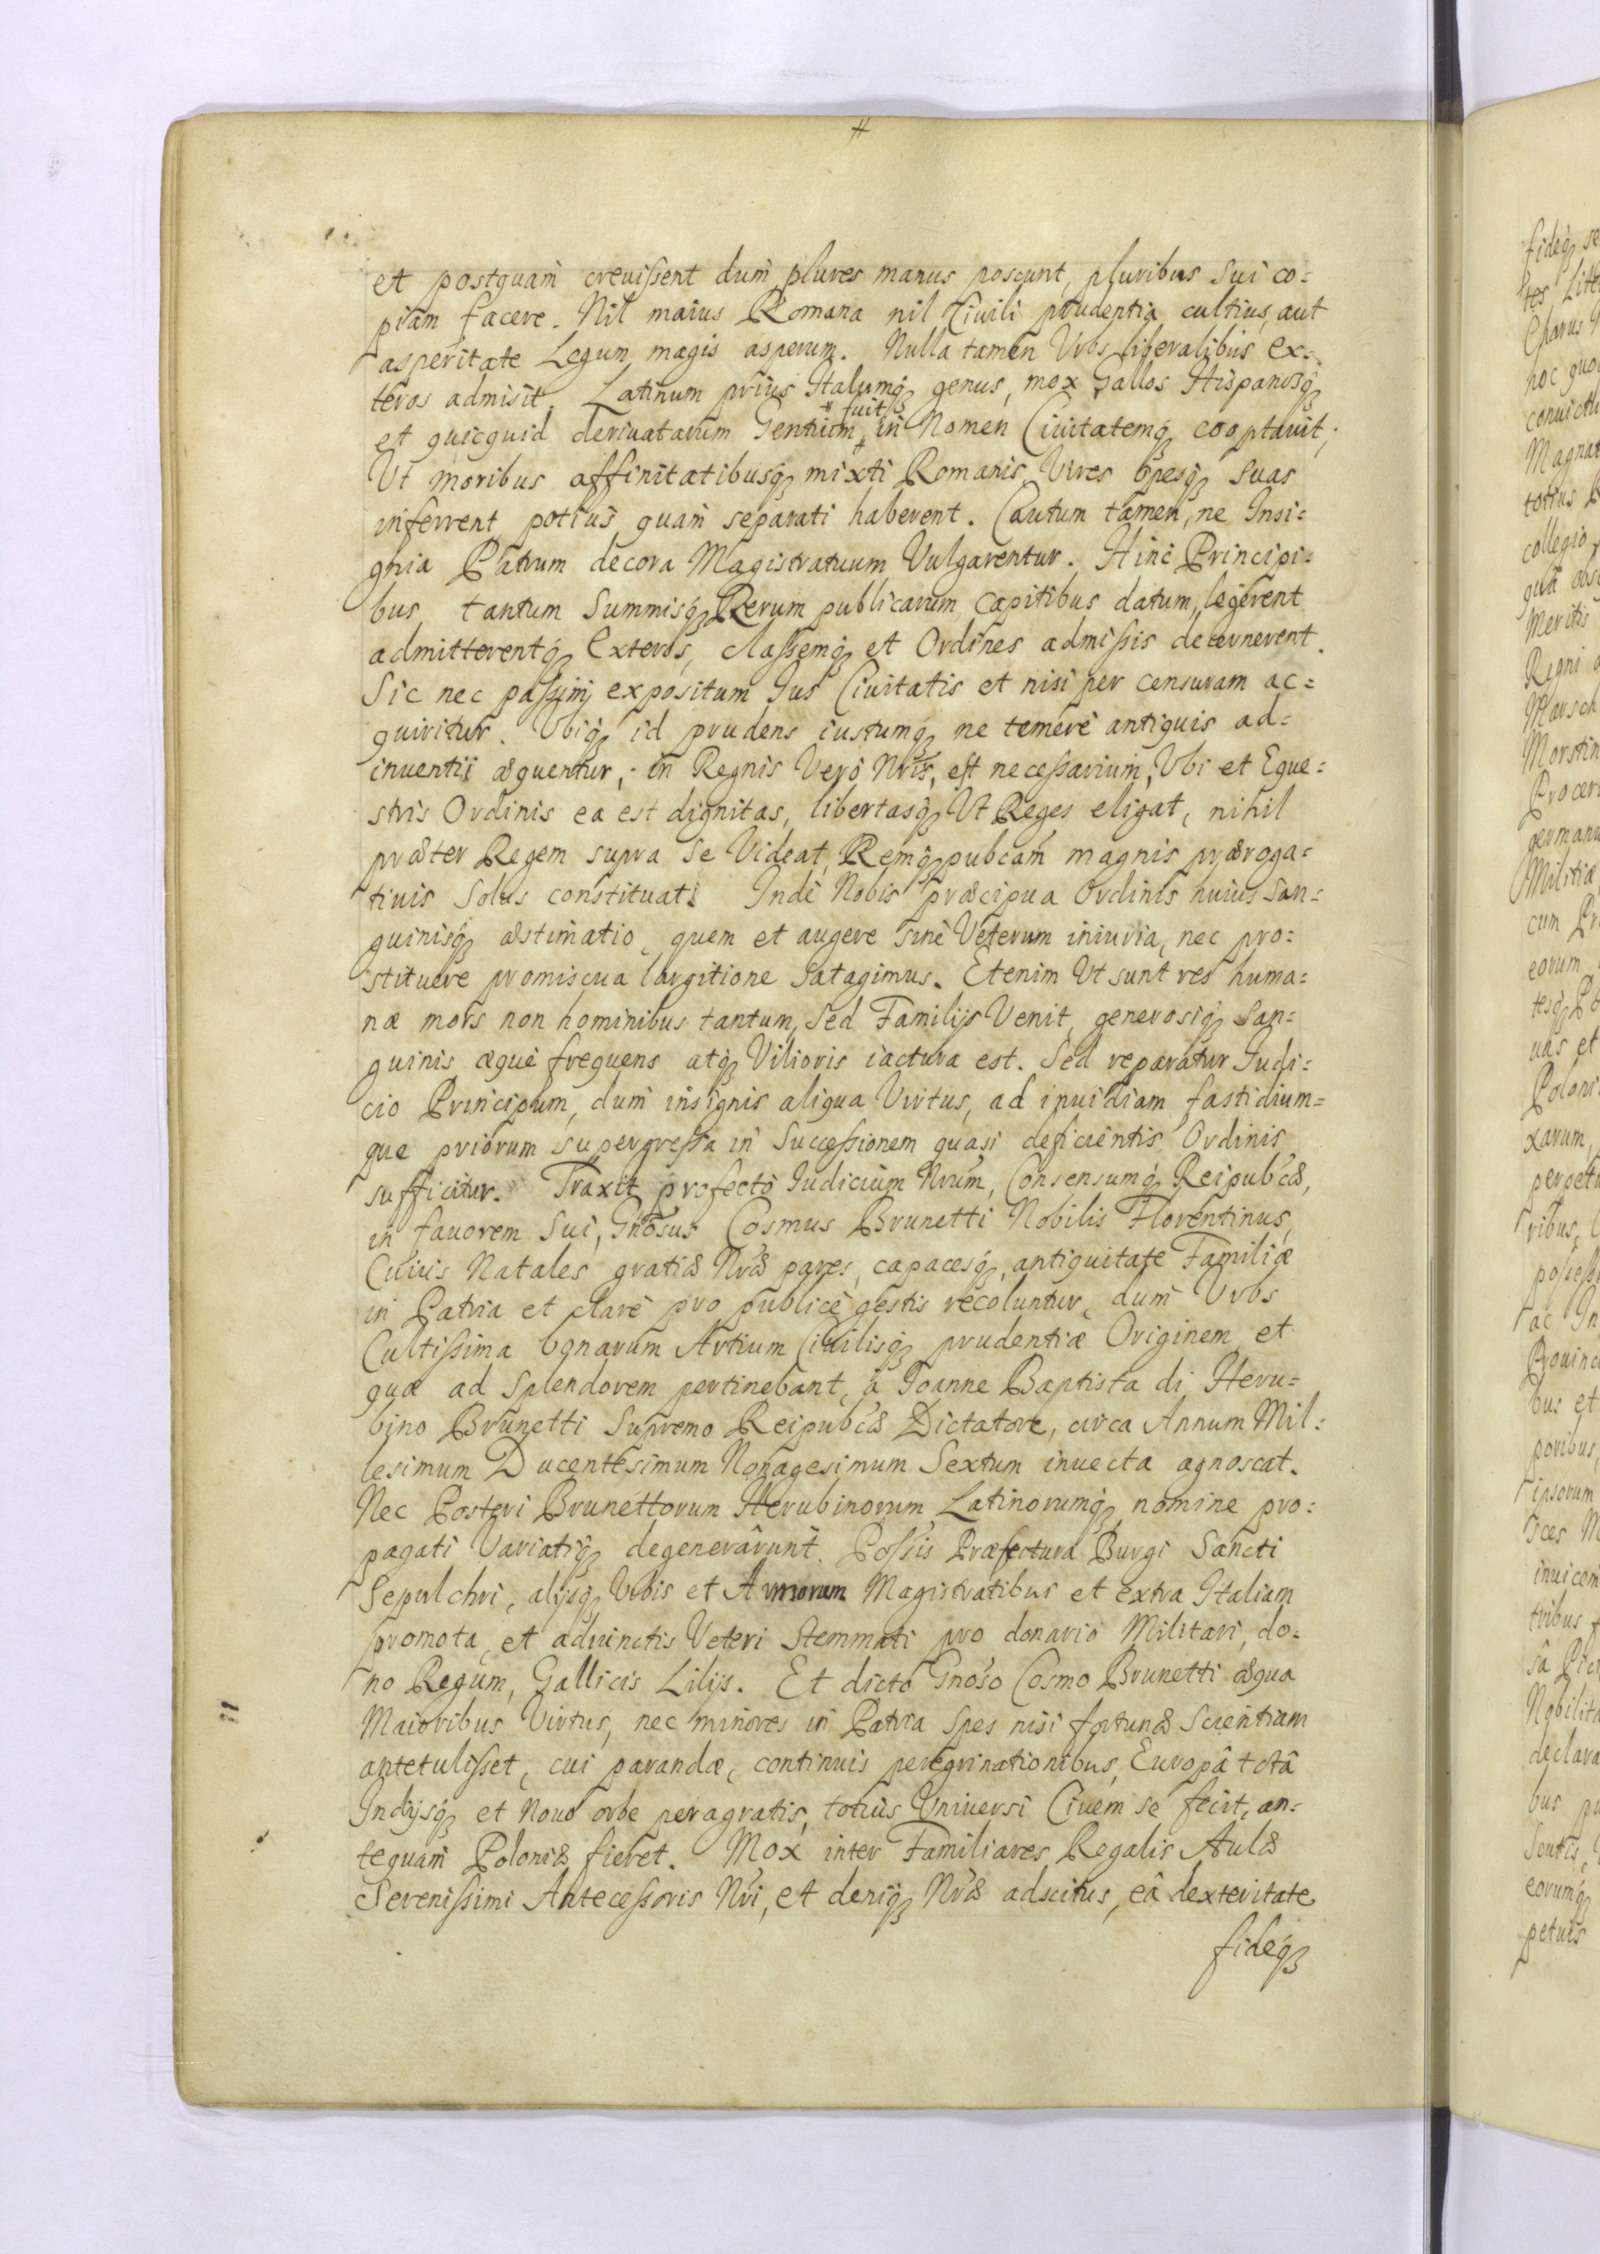 #
et postquam̃ creuissent dum̃ plures manus poscunt, pluribus sui co=
piam facere. Nil maius Romana nil Ciuili prudentia cultius, aut
asperitate Legum magis asperum. Nulla tamen Vrbs liberalibus ex=
teros admisit. Latinum prius Italumq; genus, mox Gallos Hispanosq;
# fuit
et quicquid deriuatarum Gentium, in Nomen Ciuitatemq; cooptauit;
Ut moribus affinitatibusq; mixti Romanis Vires opesq; suas
inferrent potius quam separati haberent. Cautum tamen, ne Insi=
gnia Patrum decora Magistratuum Vulgarentur. Hinc Principi=
bus tantum Summisq; Rerum publicarum Capitibus datum, legerent
admitterentq; Exteros, classemq; et Ordines admissis decernerent.
Sic nec passim expositum Ius Ciuitatis et nisi per censuram ac=
quiritur. Vbiq; id prudens iustumq; ne temerè antiquis ad=
inuentij æquentur, in Regnis Verò Nris, est necessarium, Vbi et Eque=
stris Ordinis ea est dignitas, libertasq; Vt Reges eligat, nihil
præter Regem supra se Videat, Remq; pubcam magnis præroga=
tiuis Solus constituat. Indè Nobis præcipua Ordinis huius San=
guinisq; æstimatio, quem et augere sinè Veterum iniuria, nec pro=
stituere promiscua largitione satagimus. Etenim Vt sunt res huma=
næ mors non hominibus tantum, sed Familijs Venit, generosiq; San=
guinis æquè frequens atq; Vilioris iactura est. Sed reparatur Iudi=
cio Principum, dum insignis aliqua Virtus, ad inuidiam fastidium=
que priorum supergressa in Successionem quasi deficientis Ordinis
sufficitur. Traxit profectò Iudicium Nrum, Consensumq; Reipubcæ,
in fauorem Sui, Gnosus Cosmus Brunetti Nobilis Florentinus,
Cuius Natales gratiæ Nræ pares, capacesq; antiquitate Familiæ
in Patria et clarè pro publicè gestis recoluntur, dum Vrbs
Cultissima bonarum Artium Ciuilisq; prudentiæ Originem et
quæ ad Splendorem pertinebant, à Joanne Baptista di Heru=
bino Brunetti Supremo Reipubcæ Dictatore, circa Annum Mil=
lesimum Ducentesimum Nonagesimum Sextum inuecta agnoscat.
Nec Posteri Brunettorum Herubinorum Latinorumq; nomine pro=
pagati Variatiq; degenerârunt. Possis Præfectura Burgi Sancti
Sepulchri, alijsq; Vrbis et Armorum Magistratibus et extra Italiam
promota, et adiunctis Veteri Stemmati pro donario Militari, do=
no Regum, Gallicis Lilijs. Et dicto Gnoso Cosmo Brunetti æqua
Maioribus Virtus, nec minores in Patria spes nisi fortunæ Scientiam
antetulisset, cui parandæ, continuis peregrinationibus, Europâ totâ
Indijsq; et Nouo orbe peragratis, totius Vniuersi Ciuem se fecit, an=
tequam Poloniæ fieret. Mox inter Familiares Regalis Aulæ
Serenissimi Antecessoris Nri, et deniq; Nræ adscitus, eâ dexteritate
fideq;